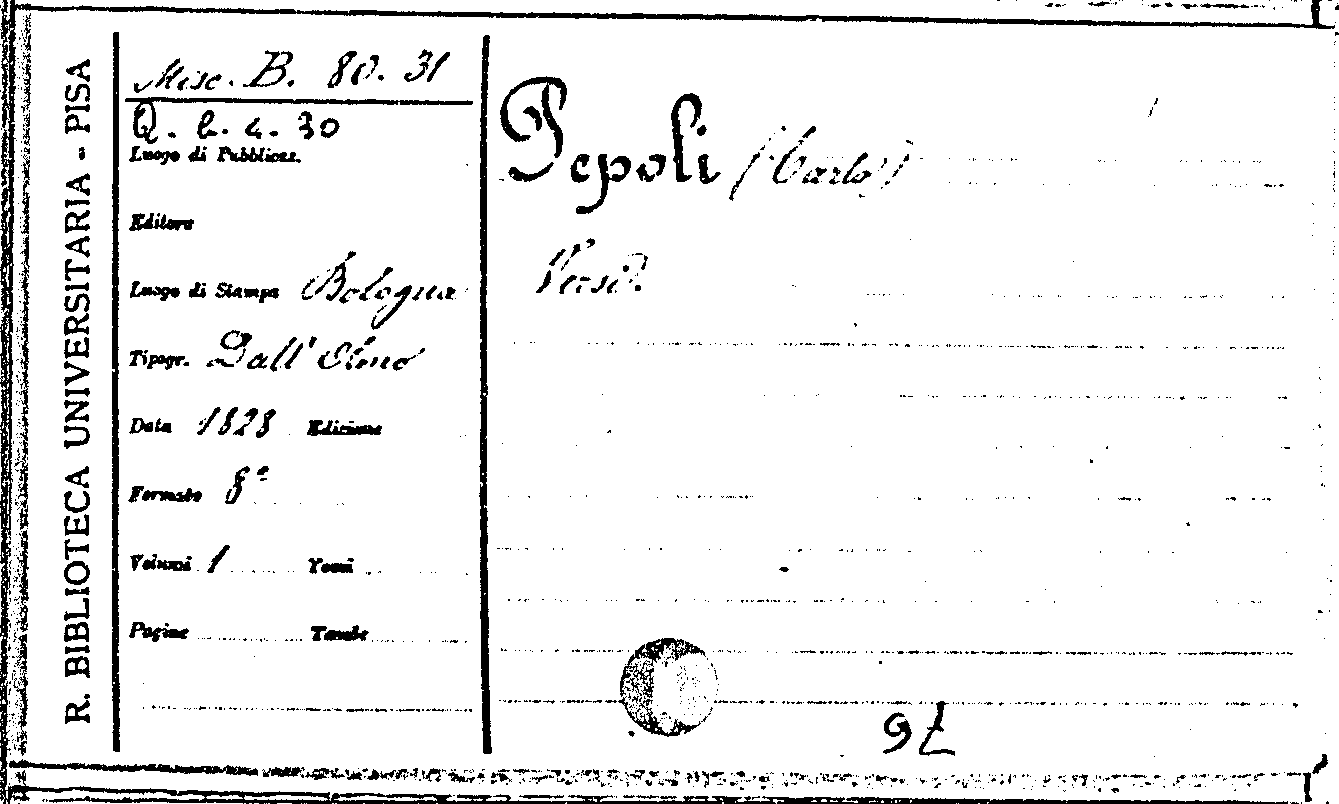 R. BIBLIOTECA UNIVERSITARIA - PISA
Misc. B. 80. 31
Q. b. 4. 30
Luogo di Pubblicaz.
Editore
Luogo di Stampa Bologna
Tipogr. Dall' Olmo
Data 1828 Edizione
Formato 8°
Volumi 1 Tomi
Pagine Tavole
Pepoli (Carlo)
Versi.